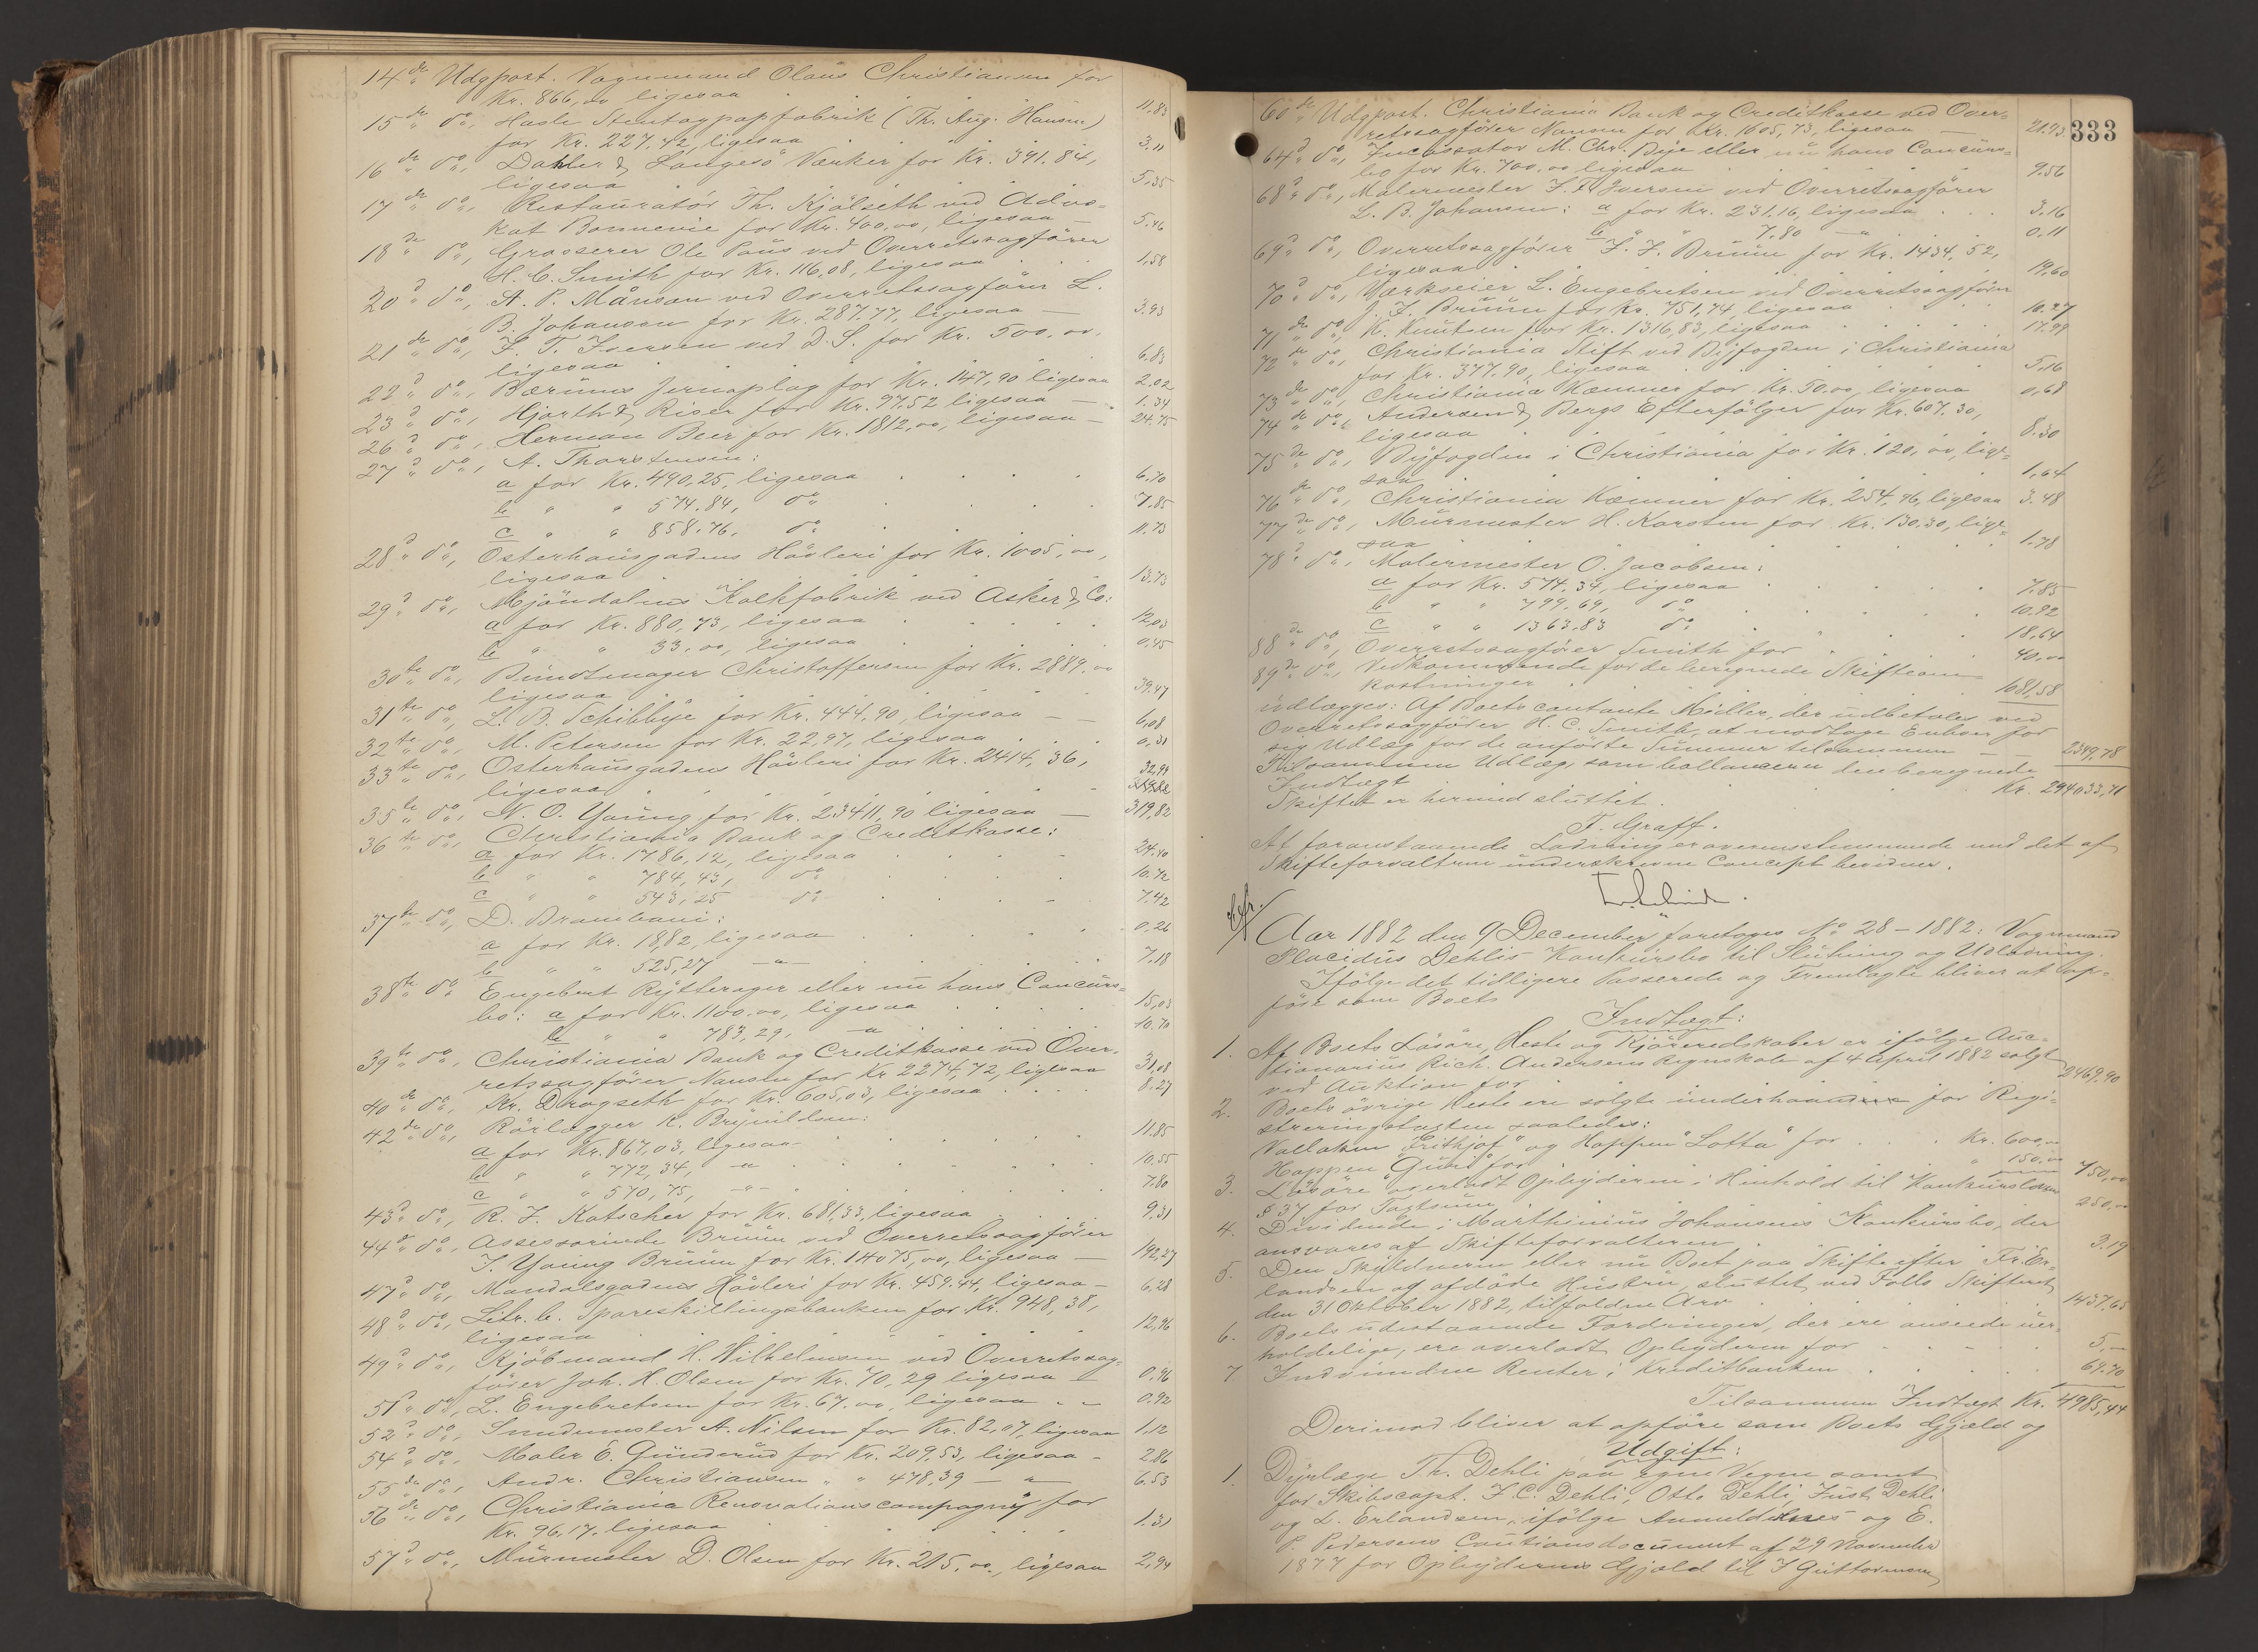 14de Udgpost. Vognmand Olaus Christiansen for
Kr. 866,00 ligesaa . . . . 11,83
15de do, Hasle Stentøypapfabrik (Th. Aug. Hansen)
for Kr. 227,42, ligesaa 3.11
16de do, Dahler & Langesö Værker for Kr. 391.84,
ligesaa 5,35
17de do, Restauratör Th. Kjölseth ved Advo-
kat Bonnevie for Kr. 400,00, ligesaa 5.46
18de do, Grosserer Ole Paus ved Overretssagförer
H. C. Smith for Kr. 116,08, ligesaa 1,58
20de do, A. P. Månson ved Overretssagförer L.
B. Johansen for Kr. 287.77, ligesaa 3.93
21de do, F. T. Iversen ved D. S. for Kr. 500,00,
ligesaa 6.83
22d do, Bærums Jernoplag for Kr. 147,90 ligesaa 2.02
23d do, Hjorth & Riser for Kr. 97.52 ligesaa 1.34
26d do, Herman Beer for Kr. 1812,00, ligesaa 24.75
27d do, A. Thorstensen:
a for Kr. 490,25, ligesaa 6.70
b " " 574.84, do 7.85
c " " 858.76, do 11.73
28d do, Osterhausgadens Høvleri for Kr. 1005,00,
ligesaa 13.73
29d do, Mjöndalens Kalkfabrik ved Asker & Co:
a for Kr. 880,73, ligesaa 12,03
b " " 33,00, ligesaa 0.45
30te do, Buntmager Christoffersen for Kr. 2889.00
ligesaa 39.47
31te do, L. B. Schibbye for Kr. 444,90, ligesaa 6,08
32te do, M. Petersen for Kr. 22,97, ligesaa 0,31
33te do, Osterhausgadens Hävleri for Kr. 2414,36,
ligesaa 32,99
35te do, N. O. Young for Kr. 23411,90 ligesaa 319,82
36te do, Christiania Bank og Creditkasse:
a for Kr. 1786,12, ligesaa 24.40
b " " 784,43, do 10.72
c " " 543,25 do 7.42
37te do, D. Brambani:
a for Kr. 18,82, ligesaa 0.26
b " " 525,27 -"- 7.18
38te do Engebret Rytterager eller nu hans Concurs-
bo: a for Kr. 1100,00, ligesaa 15,03
b " " 783,29, -"- 10.70
39te do, Christiania Bank og Creditkasse ved Over-
retssagförer Nansen for Kr 2274,72, ligesaa 31,08
40de do, Kr. Dragseth for Kr. 605,03, ligesaa 8.27
42de do, Rörlægger K. Brynildsen:
a for Kr. 867,03, ligesaa 11.85
b " " 772,34, -"- 10,55
c " " 570,75, -"- 7.80
43d do, R. F. Kotscher for Kr. 681,33, ligesaa 9,31
44d do, Assessorinde Bruun ved Overretssagförer
J. Young Bruun for Kr. 14075,00, ligesaa 192,27
47d do, Mandalsgadens Hävleri for Kr. 459.44, ligesaa 6,28
48d do, Litr. b. Spareskillingsbanken for Kr. 948,38,
ligesaa 12,96
49d do, Kjöbmand H. Wilhelmsen ved Overretssag-
förer Joh. H. Olsen for Kr. 70,29 ligesaa 0,96
51d do, L. Engebretsen for Kr. 67.00, ligesaa 0.92
52d do, Smedmester A. Nilsen for Kr. 82,07, ligesaa 1,12
54d do, Maler E. Gunderud for Kr. 209,53, ligesaa 2.86
55de do, Andr. Christiansen " " 478,39 -"- 6.53
56de do, Christiania Renovationscompagni for
Kr. 96.17. ligesaa 1.31
57d do, Murmester D. Olsen for Kr. 215,00, ligesaa 2,94
333
60de Udgpost. Christiania Bank og Creditkasse ved Over-
retssagförer Nansen for Kr. 1605,73, ligesaa 21.93.
64d do, Incassator M. Chr. Bye eller nu hans Concurs-
bo for Kr. 700,00 ligesaa 9.56
68d do, Malermester F. T. Iversen ved Overretssagförer
L. B. Johansen: a for Kr. 231.16, ligesaa 3.16
b " " 7,80 -"- 0.11
69d do, Overretssagförer J. Y. Bruun for Kr. 1434,52,
ligesaa 19,60
70d do, Værkseier L. Engebretsen ved Overretssagförer
J. Y. Bruun for Kr. 751,74, ligesaa 10.27
71de do, K. Knutsen for Kr. 1316,83, ligesaa 17.99
72de do, Christiania Stift ved Byfogden i Christiania
for Kr. 377.90, ligesaa 5,16
73de do, Christiania Kæmner for Kr. 50.00, ligesaa 0,68
74de do, Andersen & Bergs Efterfölger for Kr. 607.30,
ligesaa 8.30
75de do, Byfogden i Christiania for Kr. 120,00, lige-
saa 1,64
76de do, Christiania Kæmner for Kr. 254,96, ligesaa 3.48
77de do, Murmester H. Karsten for Kr. 130,30, lige-
saa 1.78
78d do, Malermester O. Jacobsen:
a for Kr. 574.34, ligesaa 7.85
b " " 799.69, do 10.92
c " " 1363.83 do 18,64
88de do, Overretssagförer Smith for 40,00
89de do, Vedkommende for de beregnede Skifteom-
kostninger 1681,58
udlægges: Af Boets contante Midler, der udbetales ved
Overretssagförer H. C. Smith, at modtage Enhver for
sig Udlæg for de anförte Summer tilsammen 2349,78
Tilsammen Udlæg, som ballancerer den beregnede
Indtægt Kr. 294033,71
Skiftet er hermed sluttet.
F. Graff.
At foranstaaende Lodning er overensstemmende med det af
Skifteforvalteren underskrevne Concept bevidnes.
Aar 1882 den 9 December foretoges No 28 - 1882: Vognmand
Placidus Dehlis Konkursbo til Slutning og Udlodning.
Ifölge det tidligere Passerede og Fremlagte bliver at op-
före som Boets
Indtægt:
1. Af Boets Lösöre, Heste og Kjöreredskaber er ifölge Auc-
tionarius Rich. Andersens Regnskab af 4 April 1882 solgt
ved Auktion for 2469,90
2. Boets övrige Heste ere solgte underhaanden for Regi-
streringstaxten saaledes:
Vallaken "Frithjof" og Hoppen "Lotta" for Kr. 600,00
Hoppen "Guri" for " 150.00 750,00
3. Lösöre overladt Opbyderen i Henhold til Konkursloven
§ 37 for Taxtsum 250,00
4. Dividende i Marthinius Johansens Konkursbo, der
ansvares af Skifteforvalteren 3.19
5. Den Skyldneren eller nu Boet paa Skifte efter Fr. Er-
landsen og afdöde Hustru, sluttet ved Follo Skifteret
den 31 Oktober 1882, tilfaldne Arv 1437,65
6. Boets udestaaende Fordringer, der ere ansede uer-
holdelige, ere overladt Opbyderen for 5,-
7 Indvundne Renter i Kreditbanken 69.70
Tilsammen Indtægt Kr. 4985,44
Derimod bliver at opföre som Boets Gjæld og
Udgift:
1. Dyrlæge Th. Dehli paa egne Vegne samt
for Skibscapt. F. C. Dehli, Otto Dehli, Just Dehli
og L. Erlandsen, ifölge Anmeldelses og E.
P. Pedersens Cautionsdocument af 29 November
1877 for Opbyderens Gjæld til J Guttormsen